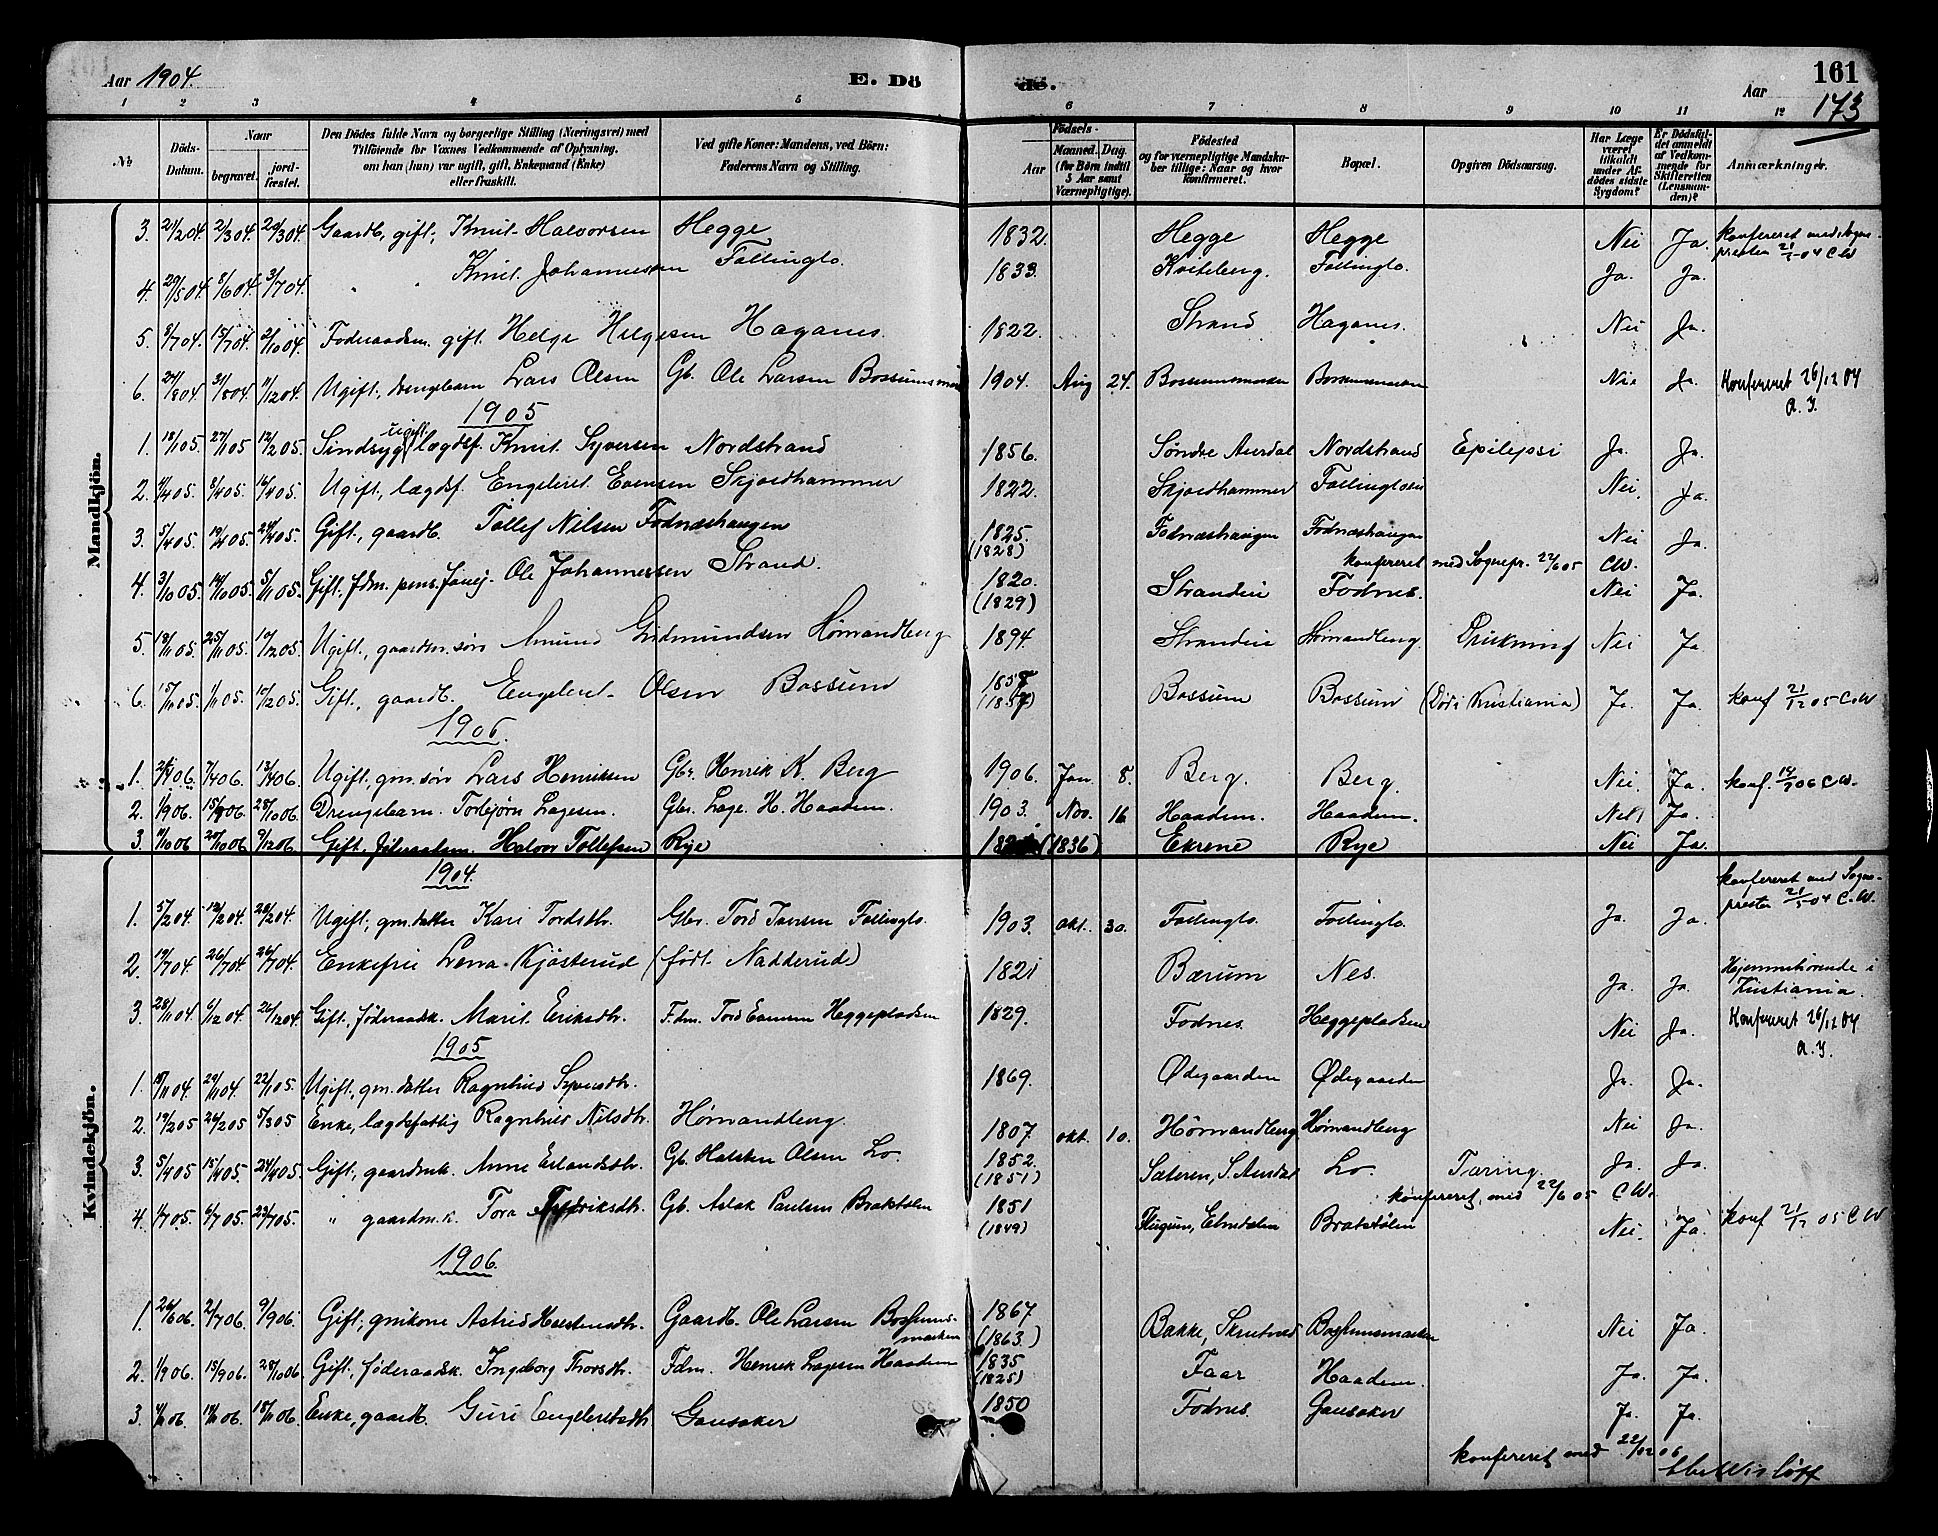 Aar 1904.
E. Döde.
Aar
161
173
1 2 3 4 5 6 7 8 9 10 11 12
№
Döds-Datum.
Naar
begravet.
jordfæstet.
Den Dödes fulde Navn og borgerlige Stilling (Næringsvei) med Tilföiende for Voxnes Vedkommende af Oplysning, om han (hun) var ugift, gift, Enkemand (Enke) eller fraskilt.
Ved gifte Koner: Mandens, ved Börn: Faderens Navn og Stilling.
Födsels-
Aar
Maaned. Dag.
(for Börn indtil 5 Aar samt Værnepligtige).
Födested og for værnepligtige Mandskaber tillige: Naar og hvor konfirmeret.
Bopæl.
Opgiven Dödsaarsag.
Har Læge været tilkaldt under Afdödes sidste Sygdom?
Er Dödsfaldet anmeldt af Vedkommende for Skifteretten (Lensmanden)?
Anmærkninger.
Mandkjön.
3. 2/3 04. Gaardb., gift, Knut Halvorsen Hegge 1832. Hegge Hegge Nei Ja. konfereret med Sogne-
presten 21/5 04 C W
4. 29/5 04. 8/6 04. 3/7 04. " " Knut Johannessen Follinglo. 1833. Kviteberg. Follinglo. Ja. Ja.
5. 8/7 04. 15/7 04. 2/10 04. Føderaadsm. gift. Helge Helgesen Haganes. 1822. Strand Haganes. Nei Ja.
6. 24/8 04. 31/8 04. 11/12 04. Ugift, drengebarn Lars Olsen Gb. Ole Larsen 1904. Aug 24. Nei Ja. Konfereret 26/12 04
1905
1. 18/1 05. 27/1 05. 12/2 05. Sindsyg ugift. lægdsf. Knut Syversen Nordstrand 1856. Søndre Aurdal Nordstrand Epilepsi Ja. Ja.
2. 1/4 05. 8/4 05. 16/4 05. Ugift, lægdsf. Engebret Evensen Skjoldhammer 1822. Skjoldhammer Nei. Ja.
3. 5/4 05. 12/4 05. 24/4 05. Gift, gaardb. Tollef Nilsen Fodnæshaugen 1825. (1828) Fodnæshaugen Fodnæshaugen Nei Ja.
konfereret med Sognepr. 22/6 05 CW.
4. 3/10 05. 14/10 05. 5/11 05. Gift, fdm. Ole Johannessen Strand. 1820. (1829) Strandeie Fodnes. Nei Ja.
5. 25/11 05. 10/12 05. Ugift, gaardm. søn Amund Gudmundsen Hømandberg 1894. Strandeie Hømandberg. Drukning Nei Ja
6. 10/12 05. Gift, gaardb. Engebret Olsen Bossum (1857) Bossum Bossum (Død i Kristiania) Ja. Ja. konf 21/12 05 C.W
1906.
1. 7/4 06. Ugift, gm. søn Lars Henriksen Gbr. Henrik K. Berg 1906. Jan. 8. Berg. Berg. Nei. Ja. konf. C W.
2. 1/9 06. 15/9 06. 28/10 06. Drengebarn Torbjørn Lagesen. Gbr. Lage H. Haadem. 1903. Nov. 16 Haadem. Haadem. Nei Ja.
3. 20/10 06 9/12 06 Gift, føderaadsm. Halvor Tollefsen Rye (1836) Ekrene Rye Nei Ja.
Kvindekjön.
1904.
1. 5/2 04. 12/2 04. 28/2 04. Ugift, gm. datter Kari Tordsdtr. Gbr. Tord Iversen Follinglo. 1903. okt. 30. Follinglo. Follinglo. Ja. Ja. konfereret med Sogne-
presten 21/5 04 C.W.
2. 19/7 04. 26/7 04. 26/7 04. Enkefrue Lena Kjøsterud (født Nadderud) 1821 Bærum Nes. Ja. Ja. Hjemmehørende i
Kristiania.
3. 28/11 04. 6/12 04. 26/12 04. Gift, føderaadsk. Marit Eriksdtr. Fdm. Tord Evensen Heggepladsen 1829. Fodnes. Heggepladsen Nei Ja. Konfereret 26/12 04
1905
1. 29/11 04. 22/1 05. Ugift, gm. datter Ragnhild Syversdtr. 1869. Ødegaarden Ødegaarden Ja. Ja.
2. 19/2 05 26/2 05 5/3 05 Enke, lægdsfattig Ragnhild Nilsdtr. Hømandberg. 1807. okt. 10. Hømandberg Hømandberg Nei Ja.
3. 5/4 05 15/4 05. 24/4 05. Gift, gaardmk. Anne Erlandsdtr. Gb. Halsten Olsen Lo. 1852. (1851) Sateren, S. Aurdal Lo. Tæring. Ja. Ja.
konfereret med 22/6 05 CW.
4. 1/7 05. 9/7 05. 23/7 05. " gaardm.k. Tora Fredriksdtr. Gb. Aslak Paulsen Bratstølen 1851 (1849) Bratstølen Nei. Ja. konf 21/12 05 C W
1906.
1. 26/6 06. 2/7 06. 9/9 06. Gift, gmkone Astrid Halstensdtr. Gaardb. Ole Larsen Bossums-
marken 1867 (1863) Bakke, Skrutvold Bossumsmarken Nei Ja.
2. 1/9 06. 15/9 06. 28/10 06. Gift, føderaadsk. Ingeborg Thorsdtr. Fdm. Henrik Lagesen Haadem 1835 (1825) Faar Haadem. Ja. Ja.
3. Enke, gaardb. Guri Engebretsdtr. Gausaker 1850 Fodnes. Gausaker Ja. Ja.
konfereret med 22/12 06